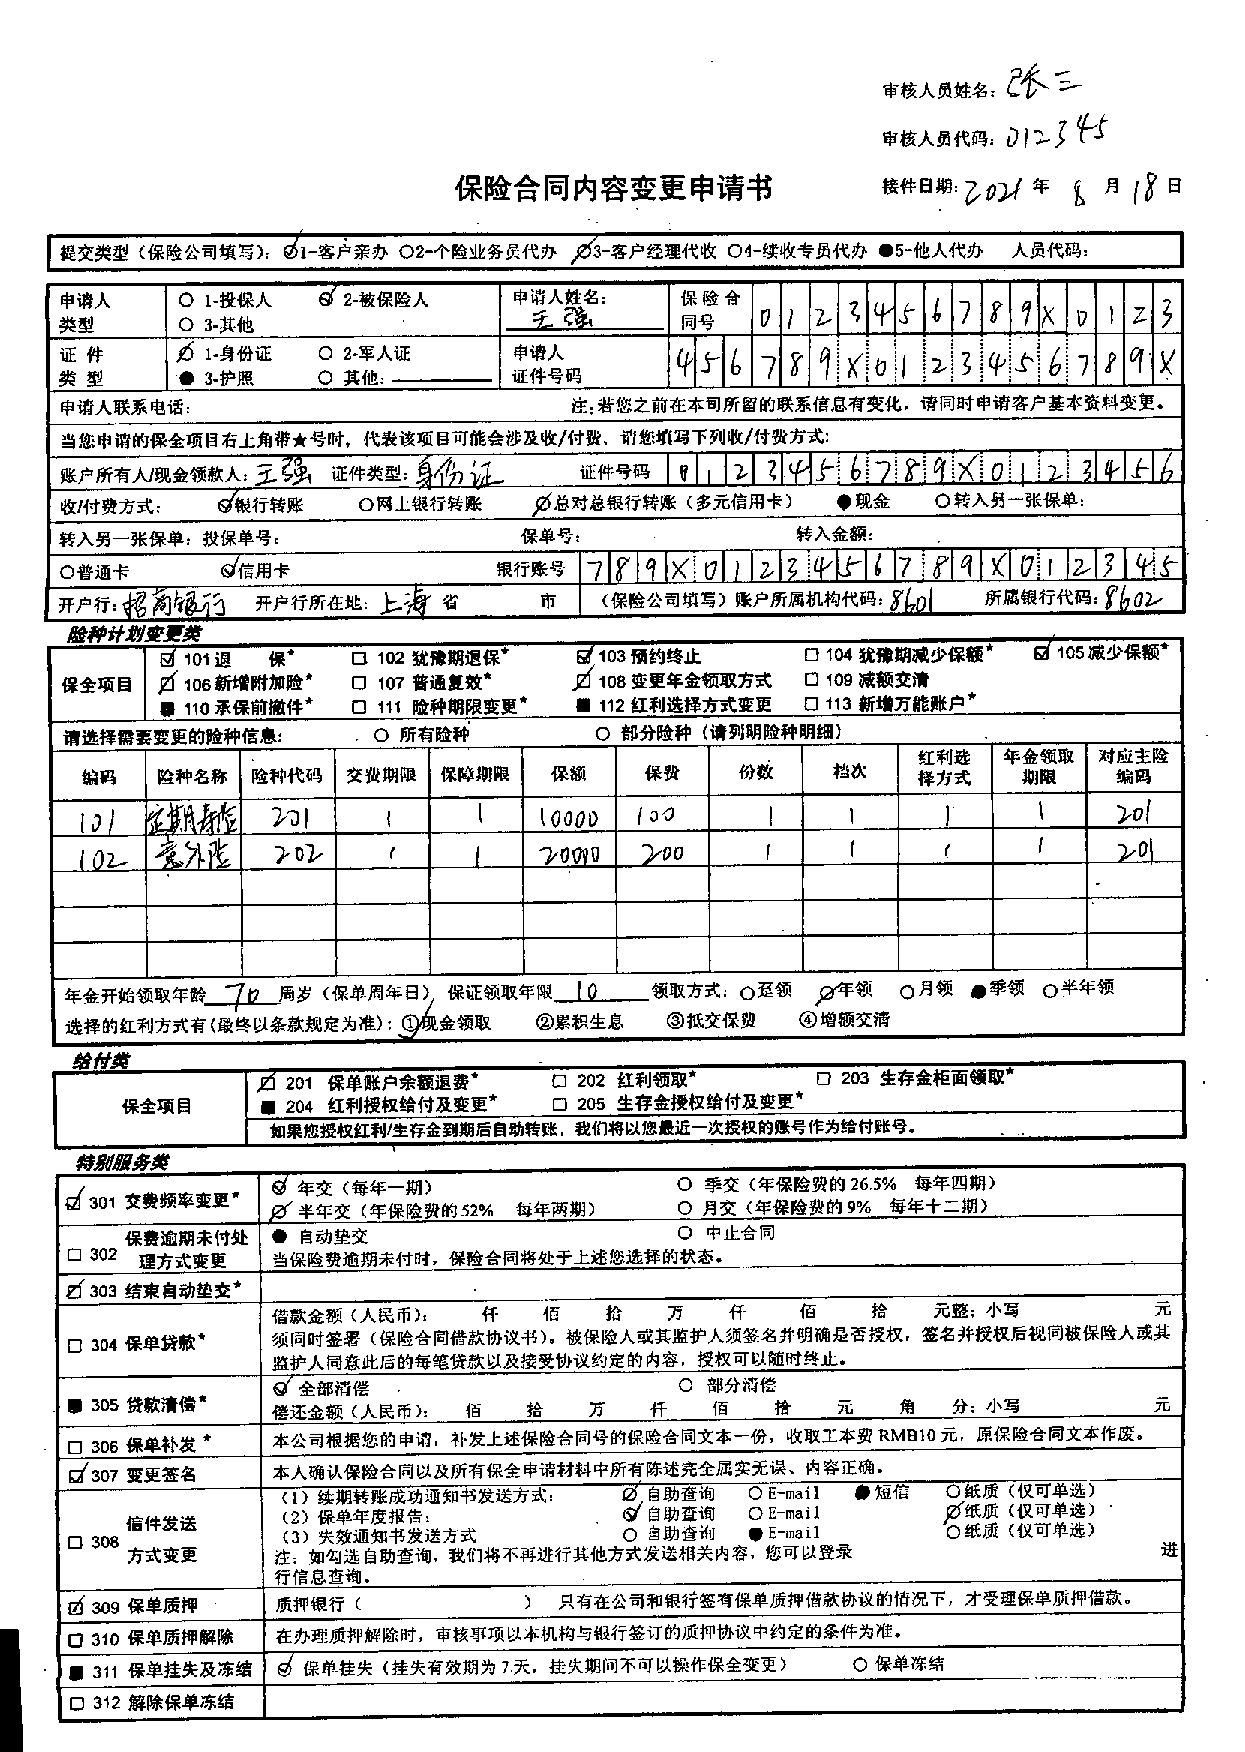 审核人员姓名：张三
审核人员代码：012345
保险合同内容变更申请书
接件日期：2021年8月18日
提交类型（保险公司填写）：☑1-客户亲办 ○2-个险业务员代办 ☑3-客户经理代收 ○4-续收专员代办 ●5-他人代办 人员代码：
申请人类型 ○ 1-投保人 ☑ 2-被保险人 ○ 3-其他 申请人姓名：王强 保险合同号 0123456789X0123
证件类型 ☑ 1-身份证 ○ 2-军人证 ● 3-护照 ○ 其他： 申请人证件号码 456789X0123456789X
申请人联系电话： 注：若您之前在本司所留的联系信息有变化，请同时申请客户基本资料变更。
当您申请的保全项目右上角带★号时，代表该项目可能会涉及收/付费、请您填写下列收/付费方式：
账户所有人/现金领款人：王强 证件类型：身份证 证件号码 0123456789X0123456
收/付费方式： ☑银行转账 ○网上银行转账 ☑总对总银行转账（多元信用卡） ●现金 ○转入另一张保单：
转入另一张保单：投保单号： 保单号： 转入金额：
○普通卡 ☑信用卡 银行账号 789X0123456789X012345
开户行：招商银行 开户行所在地：上海省 市 （保险公司填写）账户所属机构代码：8601 所属银行代码：8602
险种计划变更类
保全项目
☑ 101 退 保* □ 102 犹豫期退保* ☑ 103 预约终止 □ 104 犹豫期减少保额* ☑ 105 减少保额*
☑ 106 新增附加险* □ 107 普通复效* ☑ 108 变更年金领取方式 □ 109 减额交清
■ 110 承保前撤件* □ 111 险种期限变更* ■ 112 红利选择方式变更 □ 113 新增万能账户*
请选择需要变更的险种信息： ○ 所有险种 ○ 部分险种（请列明险种明细）
编码 险种名称 险种代码 交费期限 保障期限 保额 保费 份数 档次 红利选择方式 年金领取期限 对应主险编码
101 定期寿险 201 1 1 10000 100 1 1 1 1 201
102 意外险 202 1 1 20000 200 1 1 1 1 201
年金开始领取年龄70周岁（保单周年日）保证领取年限10 领取方式：○趸领 ☑年领 ○月领 ●季领 ○半年领
选择的红利方式有（最终以条款规定为准）：①现金领取 ②累积生息 ③抵交保费 ④增额交清
给付类
保全项目
☑ 201 保单账户余额退费* □ 202 红利领取* □ 203 生存金柜面领取*
■ 204 红利授权给付及变更* □ 205 生存金授权给付及变更*
如果您授权红利/生存金到期后自动转账，我们将以您最近一次授权的账号作为给付账号。
特别服务类
☑ 301 交费频率变更* ☑ 年交（每年一期） ○ 季交（年保险费的26.5% 每年四期）
☑ 半年交（年保险费的52% 每年两期） ○ 月交（年保险费的9% 每年十二期）
□ 302 保费逾期未付处理方式变更 ● 自动垫交 ○ 中止合同
当保险费逾期未付时，保险合同将处于上述您选择的状态。
☑ 303 结束自动垫交*
□ 304 保单贷款* 借款金额（人民币）： 仟 佰 拾 万 仟 佰 拾 元整；小写 元
须同时签署（保险合同借款协议书）。被保险人或其监护人须签名并明确是否授权，签名并授权后视同被保险人或其
监护人同意此后的每笔贷款以及接受协议约定的内容，授权可以随时终止。
■ 305 贷款清偿* ☑ 全部清偿 ○ 部分清偿
偿还金额（人民币）： 佰 拾 万 仟 佰 拾 元 角 分；小写 元
□ 306 保单补发* 本公司根据您的申请，补发上述保险合同号的保险合同文本一份，收取工本费RMB10元，原保险合同文本作废。
☑ 307 变更签名 本人确认保险合同以及所有保全申请材料中所有陈述完全属实无误、内容正确。
□ 308 信件发送方式变更 （1）续期转账成功通知书发送方式： ☑ 自助查询 ○ E-mail ● 短信 ○纸质（仅可单选）
（2）保单年度报告： ☑ 自助查询 ○ E-mail ☑纸质（仅可单选）
（3）失效通知书发送方式 ○ 自助查询 ● E-mail ○纸质（仅可单选）
注：如勾选自助查询，我们将不再进行其他方式发送相关内容，您可以登录 进
行信息查询。
☑ 309 保单质押 质押银行（ ） 只有在公司和银行签有保单质押借款协议的情况下，才受理保单质押借款。
□ 310 保单质押解除 在办理质押解除时，审核事项以本机构与银行签订的质押协议中约定的条件为准。
■ 311 保单挂失及冻结 ☑ 保单挂失（挂失有效期为7天，挂失期间不可以操作保全变更） ○ 保单冻结
□ 312 解除保单冻结